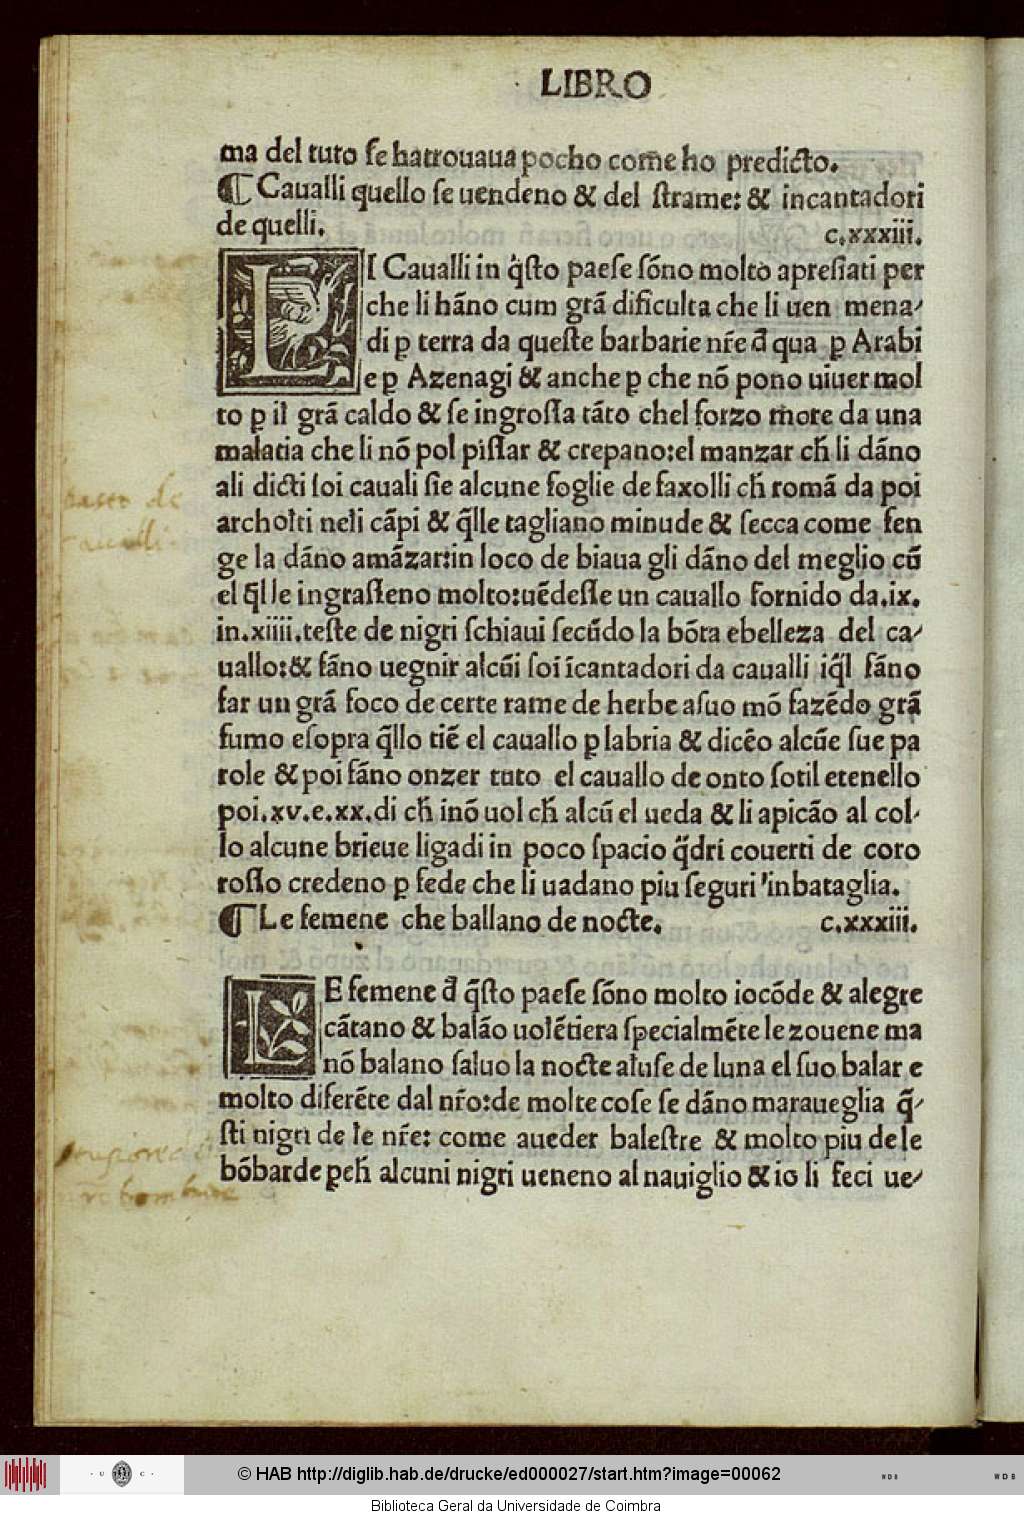 LIBRO
ma del tuto ſe hatrouaua pocho com̃e ho predicto.
¶ Caualli quello se uendeno & del ſtrame: & incantadori
de quelli. c.xxxiii.
LI Caualli in q̃ſto paeſe ſõno molto apreſiati per
che li hãno cum grã dificulta che li uen mena⸗
di ꝑ terra da queſte barbarie nr̃e d̃ qua ꝑ Arabi
e ꝑ Azenagi & anche ꝑ che nõ pono uiuer mol
to ꝑ il grã caldo & ſe ingroſſa tãto chel forzo m̃ore da una
malatia che li nõ pol piſſar & crepano:el manzar ch̃ li dãno
ali dicti ſoi cauali ſie alcune foglie de faxolli ch̃ romã da poi
archolti neli cãpi & q̃lle tagliano minude & ſecca come fen
ge la dãno amãzar:in loco de biaua gli dãno del meglio cũ
el q̃l le ingraſſeno molto:uẽdeſſe un cauallo fornido da.ix.
in.xiiii.teſte de nigri ſchiaui ſecũdo la bõta ebelleza del ca⸗
uallo:& fãno uegnir alcũi ſoi ĩcantadori da caualli iq̃l fãno
far un grã foco de certe rame de herbe aſuo mõ fazẽdo grã
fumo eſopra q̃llo tiẽ el cauallo ꝑ labria & dicẽo alcũe ſue pa
role & poi fãno onzer tuto el cauallo de onto ſotil etenello
poi.xv.e.xx.di ch̃ inõ uol ch̃ alcũ el ueda & li apicão al col⸗
lo alcune brieue ligadi in poco ſpacio q̃dri couerti de coro
roſſo credeno ꝑ fede che li uadano piu ſeguri inbataglia.
¶ Le femene che ballano de nocte. c.xxxiii.
LE femene d̃ q̃ſto paeſe ſõno molto iocõde & alegre
cãtano & balão uolẽtiera ſpecialmẽte le zouene ma
nõ balano ſaluo la nocte aluſe de luna el ſuo balar e
molto diferẽte dal nr̃o:de molte coſe ſe dãno maraueglia q̃⸗
ſti nigri de le nr̃e: come aueder baleſtre & molto piu de le
bõbarde ꝑch̃ alcuni nigri ueneno al nauiglio & io li feci ue⸗
bombarde
© HAB http://diglib.hab.de/drucke/ed000027/start.htm?image=00062
· U C ·
WDB
WDB
Biblioteca Geral da Universidade de Coimbra